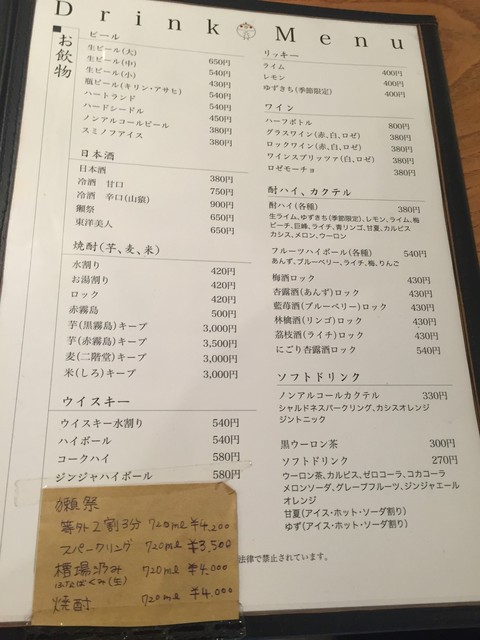 Drink Menu
■お飲物
ビール
生ビール(大) 650円
生ビール(中) 540円
生ビール(小) 430円
瓶ビール(キリン・アサヒ) 540円
ハートランド 540円
ハードシードル 450円
ノンアルコールビール 380円
スミノフアイス 380円
日本酒
日本酒 380円
冷酒 甘口 750円
冷酒 辛口(山猿) 900円
獺祭 650円
東洋美人 650円
焼酎(芋、麦、米)
水割り 420円
お湯割り 420円
ロック 420円
赤霧島 500円
芋(黒霧島)キープ 3,000円
芋(赤霧島)キープ 3,500円
麦(二階堂)キープ 3,000円
米(しろ)キープ 3,000円
ウイスキー
ウイスキー水割り 540円
ハイボール 540円
コークハイ 580円
ジンジャハイボール 580円
リッキー
ライム 400円
レモン 400円
ゆずきち(季節限定) 400円
ワイン
ハーフボトル 800円
グラスワイン(赤、白、ロゼ) 380円
ロックワイン(赤、白、ロゼ) 380円
ワインスプリッツァ(白、ロゼ) 380円
ロゼモーチョ 380円
酎ハイ、カクテル
酎ハイ(各種) 380円
生ライム、ゆずきち(季節限定)、レモン、ライム、梅
ピーチ、巨蜂、ライチ、青リンゴ、甘夏、カルピス
カシス、メロン、ウーロン
フルーツハイボール(各種) 540円
あんず、ブルーベリー、ライチ、梅、りんご
梅酒ロック 430円
杏露酒(あんず)ロック 430円
藍苺酒(ブルーベリー)ロック 430円
林檎酒(リンゴ)ロック 430円
茘枝酒(ライチ)ロック 430円
にごり杏露酒ロック 540円
ソフトドリンク
ノンアルコールカクテル 330円
シャルドネスパークリング、カシスオレンジ
ジントニック
黒ウーロン茶 300円
ソフトドリンク 270円
ウーロン茶、カルピス、ゼロコーラ、コカコーラ
メロンソーダ、グレープフルーツ、ジンジャエール
オレンジ
甘夏(アイス・ホット・ソーダ割り)
ゆず(アイス・ホット・ソーダ割り)
法律で禁止されています。
獺祭
等外2割3分 720ml ¥4,200
スパークリング 720ml ¥3,500
槽場汲み 720ml ¥4,000
ふなばくみ(生)
焼酎 720ml ¥4,000